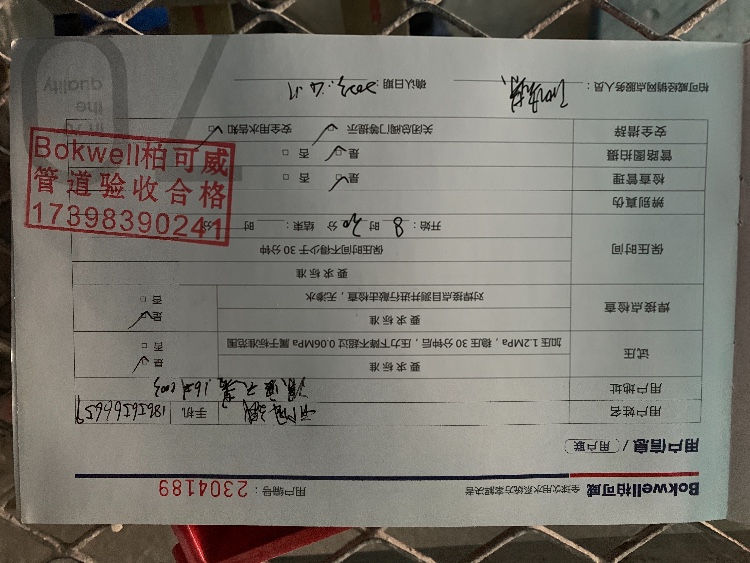 Bokwell柏可威 全球饮用水系统方案解决者
用户编号：2304189
用户信息 / 用户联
用户姓名 手机 18656566659
用户地址
试压 要求标准 是 否
加压1.2MPa，稳压30分钟后，压力下降不超过0.06MPa属于标准范围
焊接点检查 要求标准 是 否
对焊接点目测并进行敲击检查，无渗水
保压时间 要求标准
保压时间不得少于30分钟
开始：8 时 20 分 结束： 时 分
辨别真伪
检查管理 是 否
管路图拍摄 是 否
安全措辞 关闭总阀门等提示 安全用水告知
柏可威经销网点服务人员： 确认日期：2023.4.17
the
quality
Bokwell柏可威
管道验收合格
17398390241